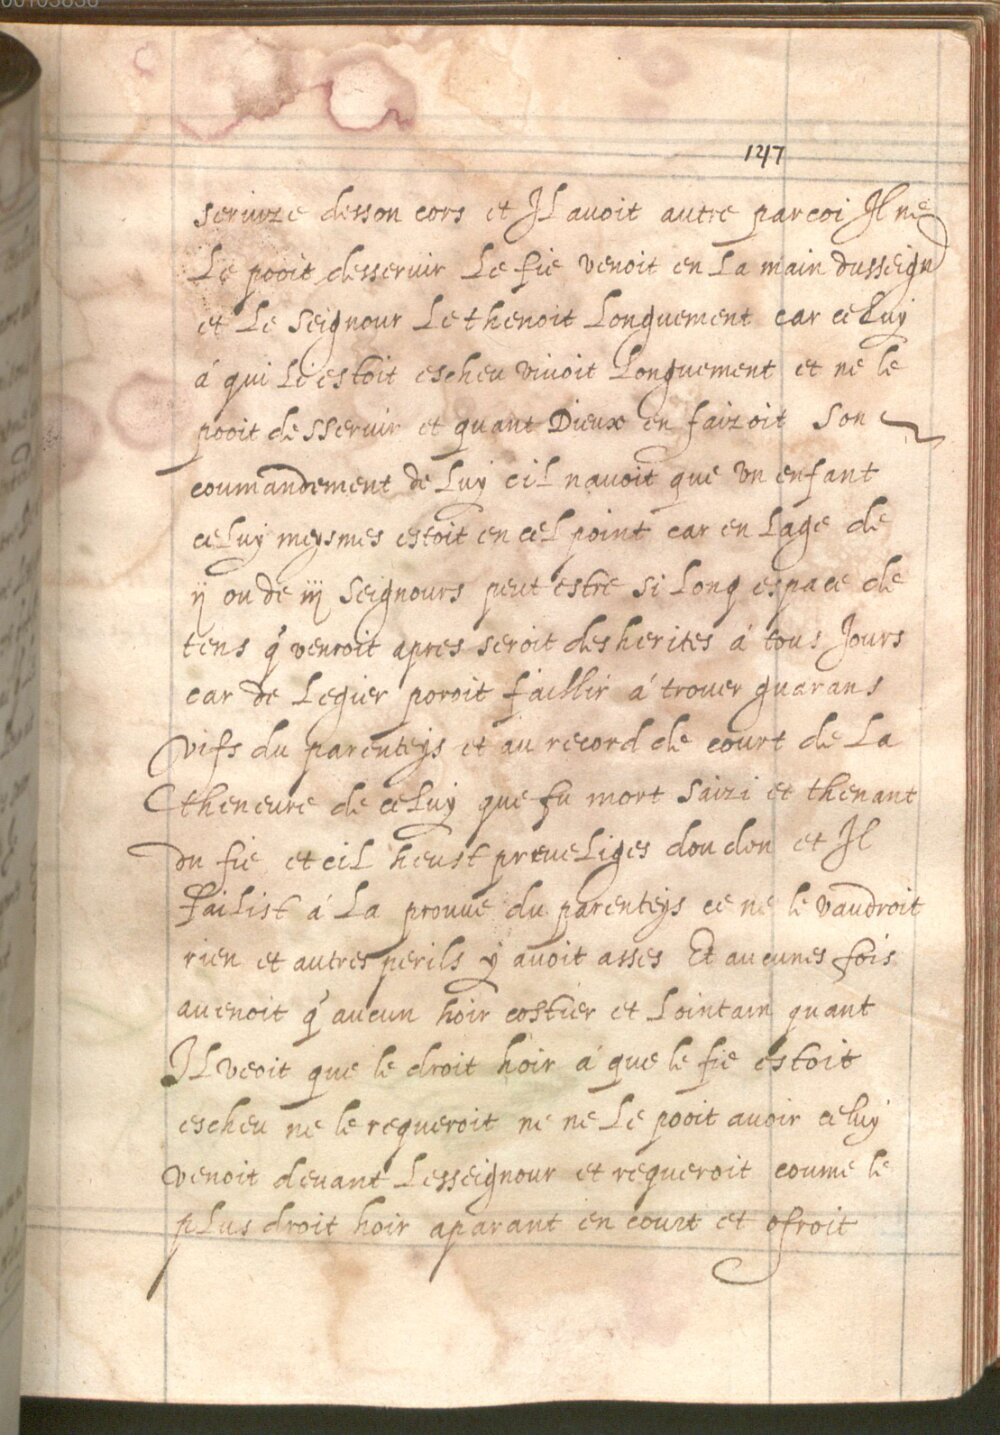 00103836
147
servize desson cors et Il auoit autre parcoi Il ne
Le pooit desseruir Le fie venoit en La main dusseign
et Le Seignour Le thenoit Longuement car celuy
á qui Li estoit escheu viuoit Longuement et ne le
pooit desseruir et quant Dieux en faizoit Son
coumandement de Luy cil nauoit que vn enfant
celuy meysmes estoit en cel point car en Lage de
ij ou de iij Seignours peut estre si Long espace de
tens q' venroit apres seroit desherites á tous Jours
car de Legier poroit faillir á trouer guarans
vifs du parenteys et au record de court de La
theneure de celuy que fu mort saizi et thenant
du fie et cil heust preueliges dou don et Il
failist á La prouue du parenteys ce ne le vaudroit
rien et autres perils y auoit asses Et aucunes fois
auenoit q' aucun hoir costier et Lointain quant
Il veoit que le droit hoir á que le fie estoit
escheu ne le requeroit ne ne Le pooit auoir celuy
venoit deuant Lesseignour et requeroit coume le
plus droit hoir aparant en court et ofroit